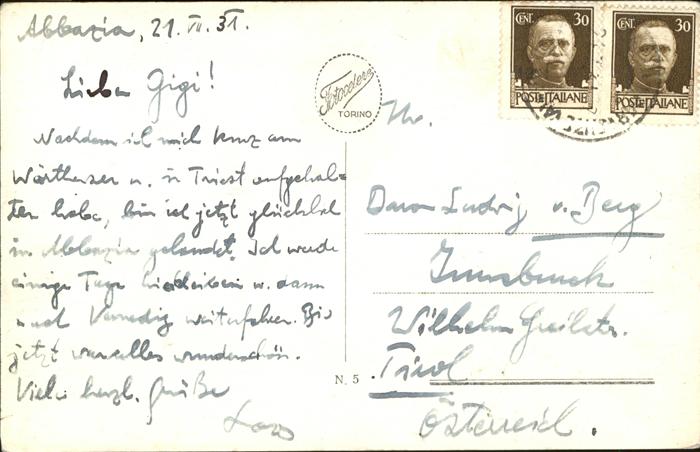 Abbazia, 21. VII. 31.
Lieber Gigi!
Nachdem ich mich kurz am
Wörthersee u. in Triest aufgehal-
ten habe, bin ich jetzt glücklich
in Abbazia gelandet. Ich werde
einige Tage hierbleiben u. dann
nach Venedig weiterfahren. Bis
jetzt war alles wunderschön.
Viele herzl. Grüße
Fotocelere
TORINO
CENT. 30
POSTE ITALIANE
CENT. 30
POSTE ITALIANE
N. 5
Baron Ludwig v. Berg
Innsbruck
Wilhelm Greilstr.
Tirol
Österreich.